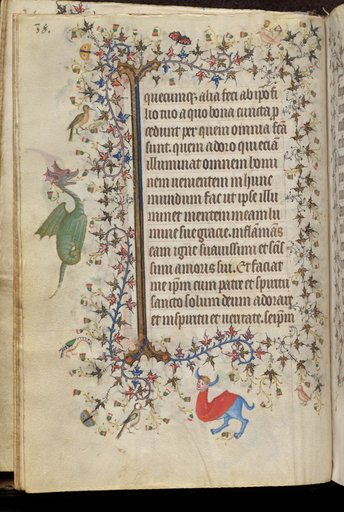 38.
quecumq; alia feci ab ipso fi
lio tuo a quo bona cuncta p
cedunt per quem omnia fca
sunt. quem adoro qui etiam
illuminat omnem homi
nem venientem in hunc
mundum fac ut ipse illu
minet mentem meam lu
mine sue gracie. inflamas
eam igne suavissimi et
simi amoris sui. Et faciat
me ipm cum patre et spiritu
sancto solum deum adorare
et in spiritu et veritate. seipm